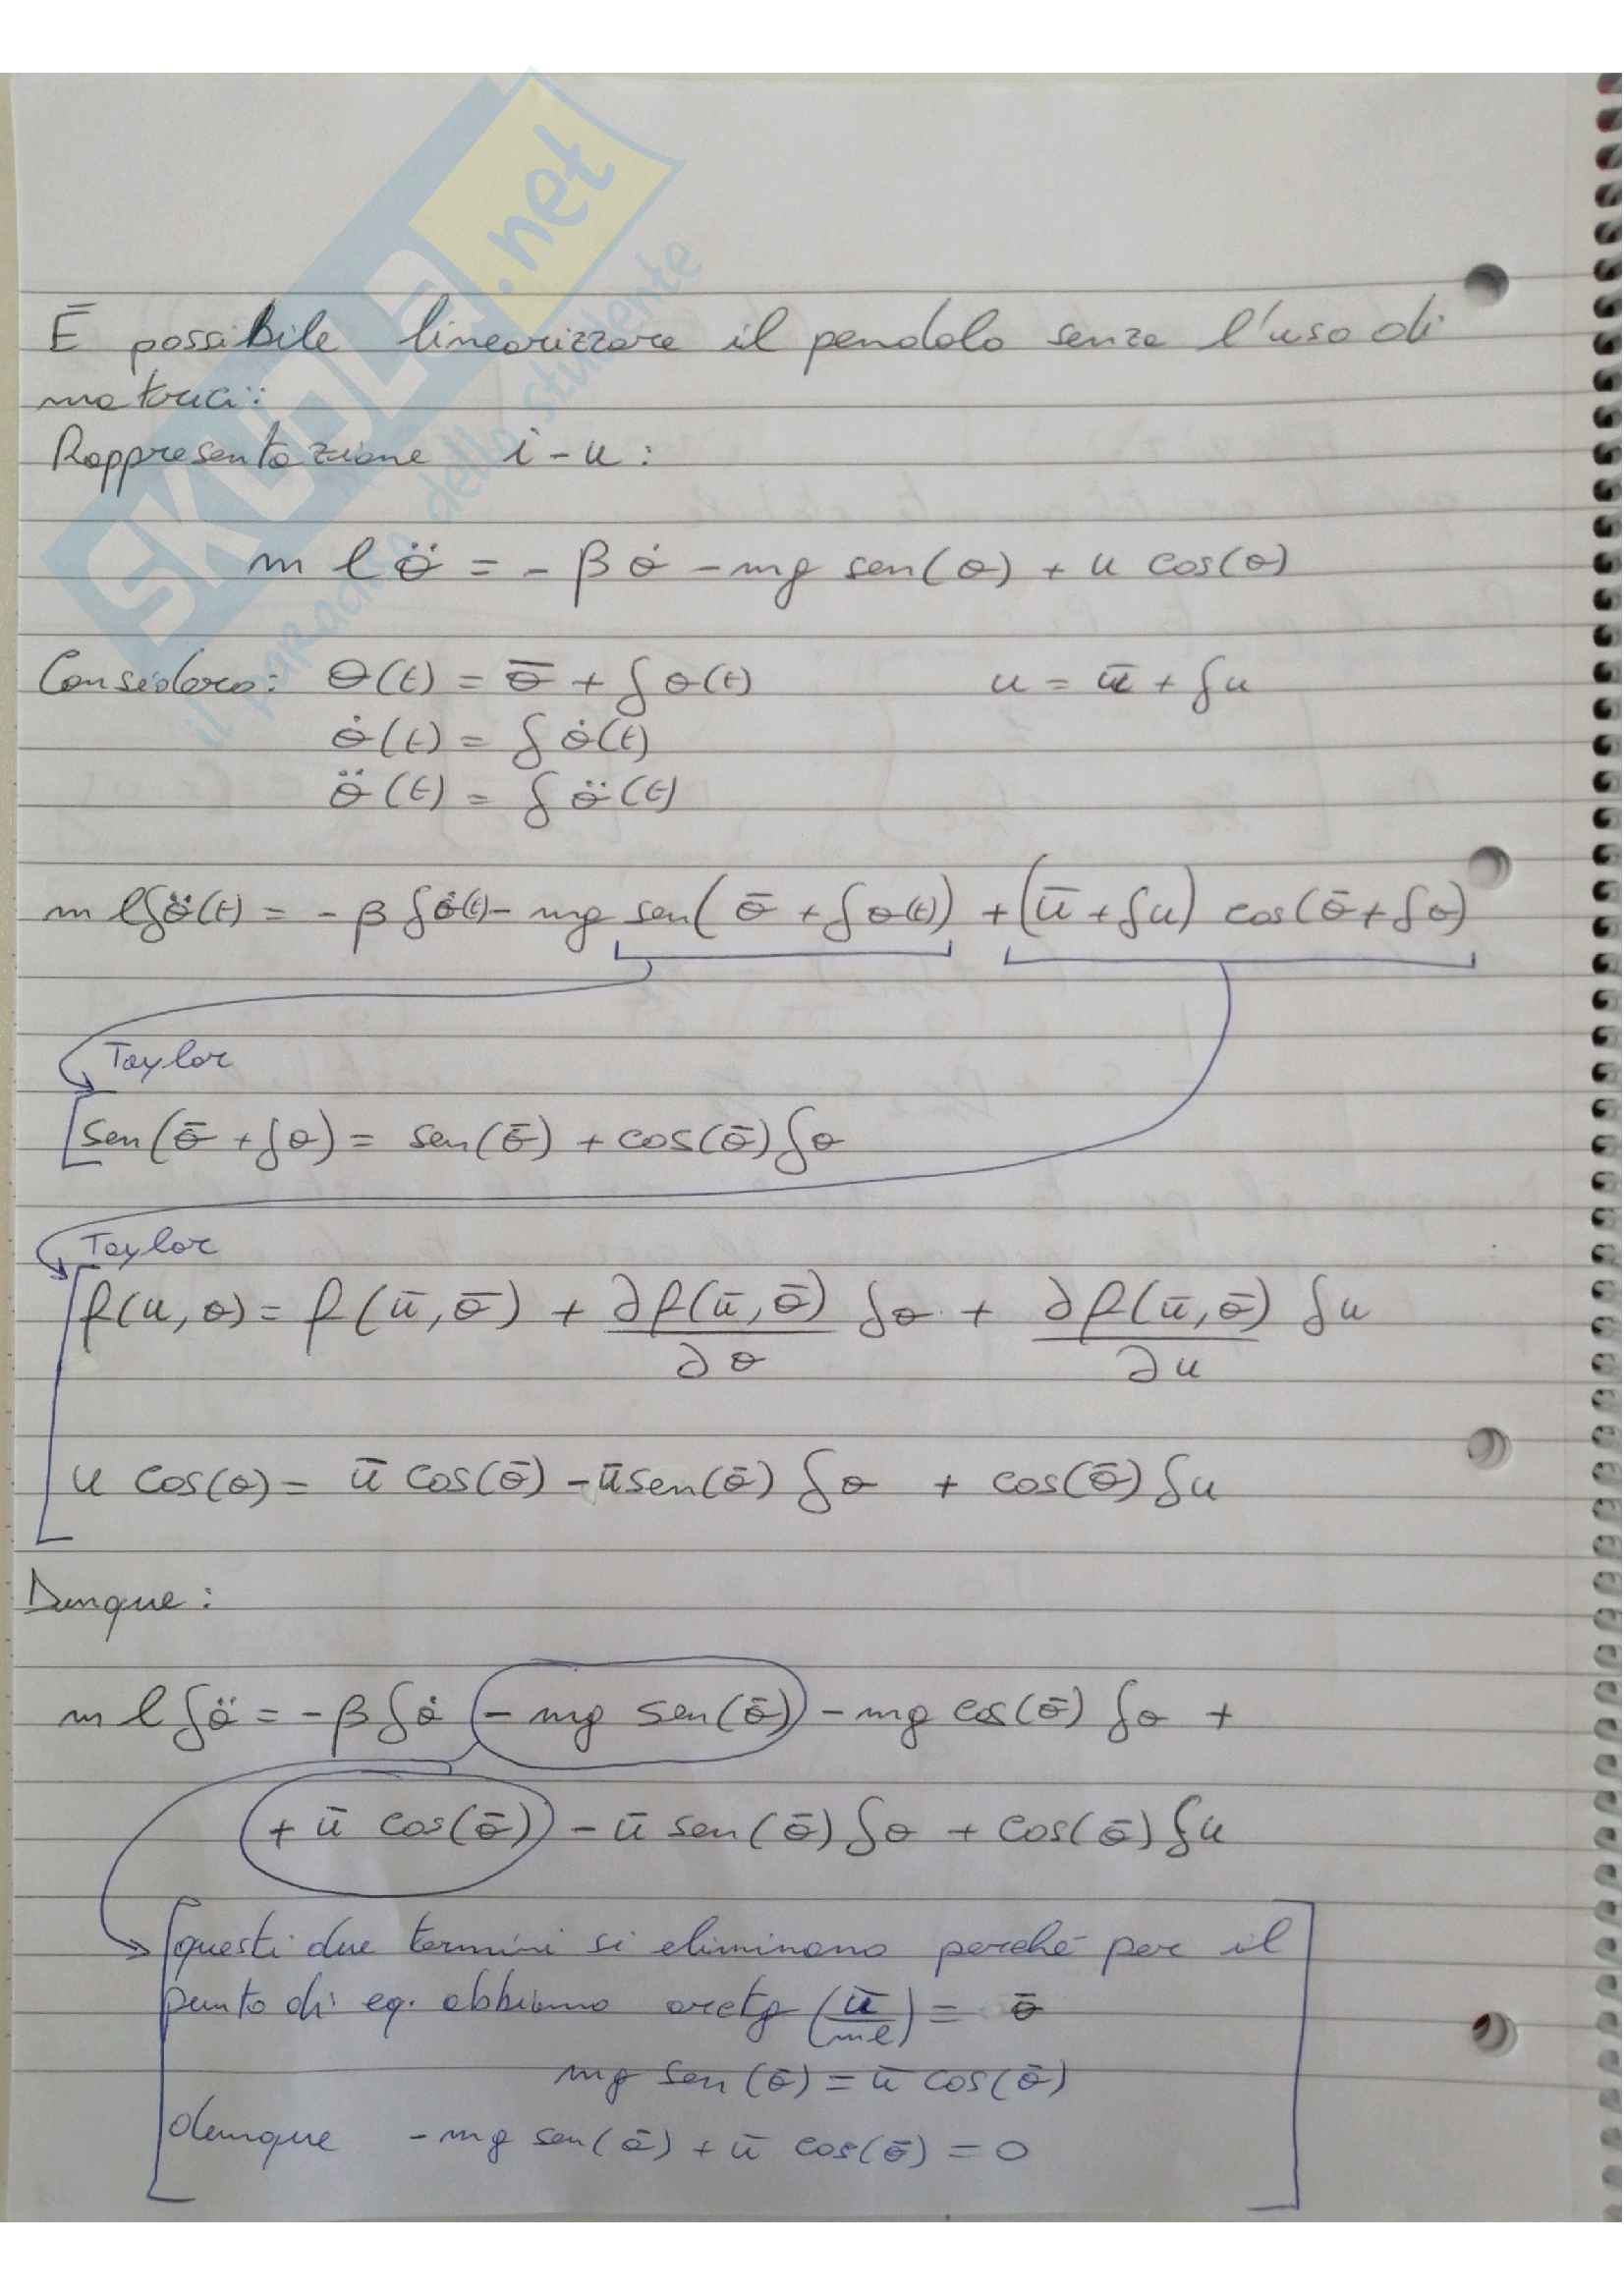 SKUOLA.net
il paradiso dello studente
È possibile linearizzare il pendolo senza l'uso di
matrici:
Rappresentazione i-u:
m l θ̈ = - β θ̇ - mg sen(θ) + u cos(θ)
Considero: θ(t) = θ̄ + δθ(t) u = ū + δu
θ̇(t) = δθ̇(t)
θ̈(t) = δθ̈(t)
m l δθ̈(t) = - β δθ̇(t) - mg sen(θ̄ + δθ(t)) + (ū + δu) cos(θ̄ + δθ)
Taylor
sen(θ̄ + δθ) = sen(θ̄) + cos(θ̄) δθ
Taylor
f(u, θ) = f(ū, θ̄) + ∂f(ū, θ̄)/∂θ δθ + ∂f(ū, θ̄)/∂u δu
u cos(θ) = ū cos(θ̄) - ū sen(θ̄) δθ + cos(θ̄) δu
Dunque:
m l δθ̈ = - β δθ̇ - mg sen(θ̄) - mg cos(θ̄) δθ +
+ ū cos(θ̄) - ū sen(θ̄) δθ + cos(θ̄) δu
questi due termini si eliminano perché per il
punto di eq. abbiamo arctg (ū/ml) = θ̄
mg sen(θ̄) = ū cos(θ̄)
dunque - mg sen(θ̄) + ū cos(θ̄) = 0